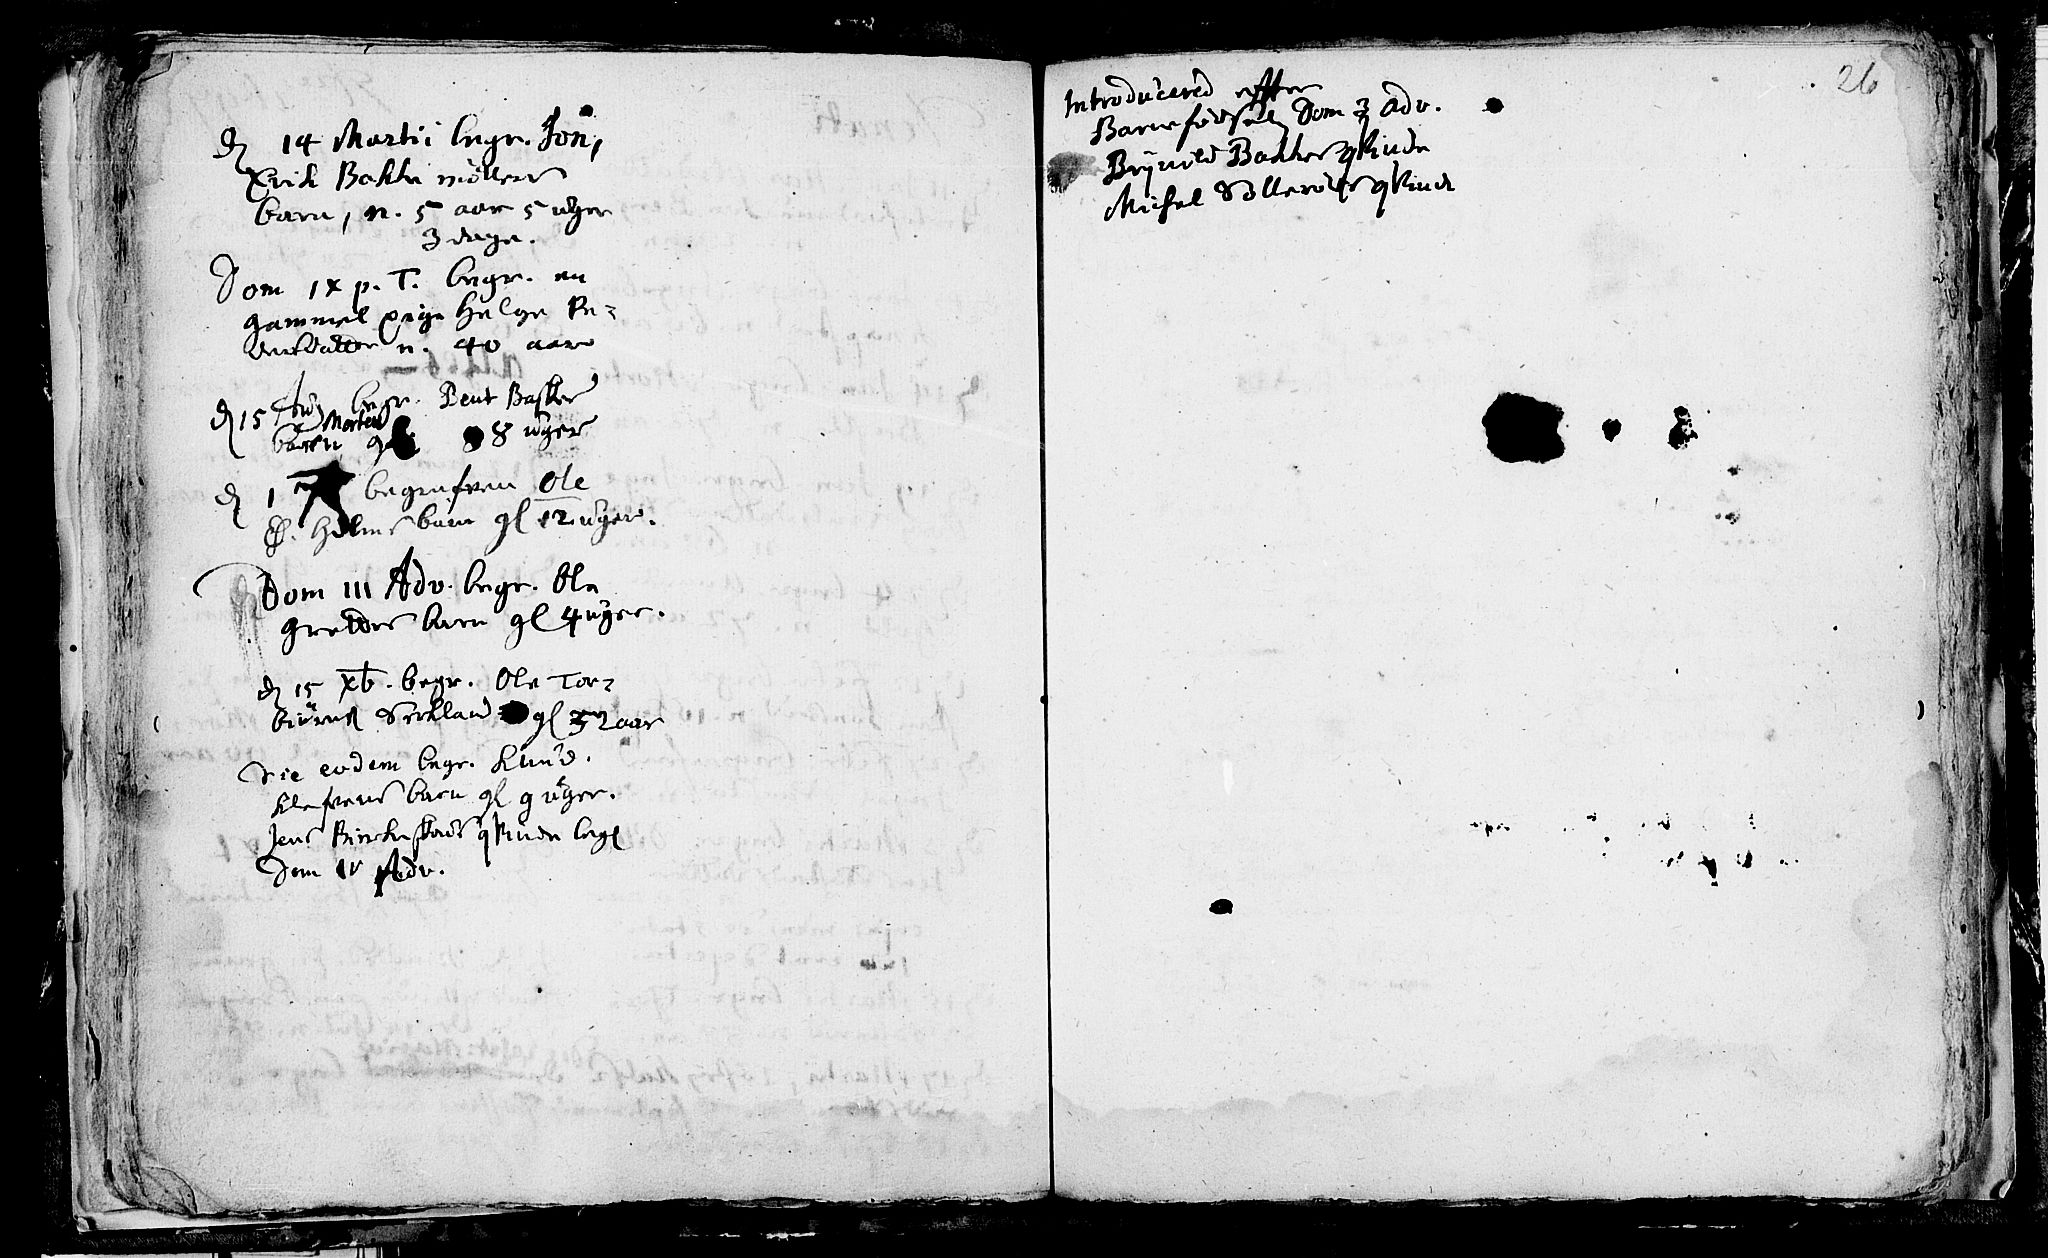 d 14 Martii begr. Jon,
Erik Bakke möllers
barn, n. 5 aar 5 uger
3 dage.
Dom IX p. T. begr. en
gammel pige Helge Pe-
dersdatter n. 40 aar
d 15 begr. Bent Basker
Morten
barn 8 uger
d 1 begrafven Ole
Ø. Holms barn gl 12 uger.
Dom III Adv. begr. Ole
Grettes barn gl 4 uger.
d 15 Xb. begr. Ole Tor-
biörns Serkland gl 32 aar
Die eodem begr. Knud
Klefvens barn gl 9 uger.
Jens Birkestads qvinde begr
Dom IV Adv.
26
Introducered effter
Barnefödsel Dom 3 Adv.
Brÿnild Bakkes qvinde
Michel Sölleröds qvinde